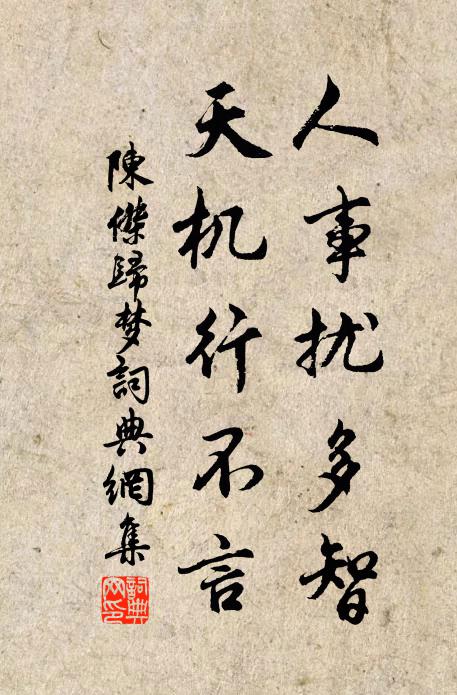 人事扰多智
天机行不言
陳傑歸梦詞典網集
詞典
网印